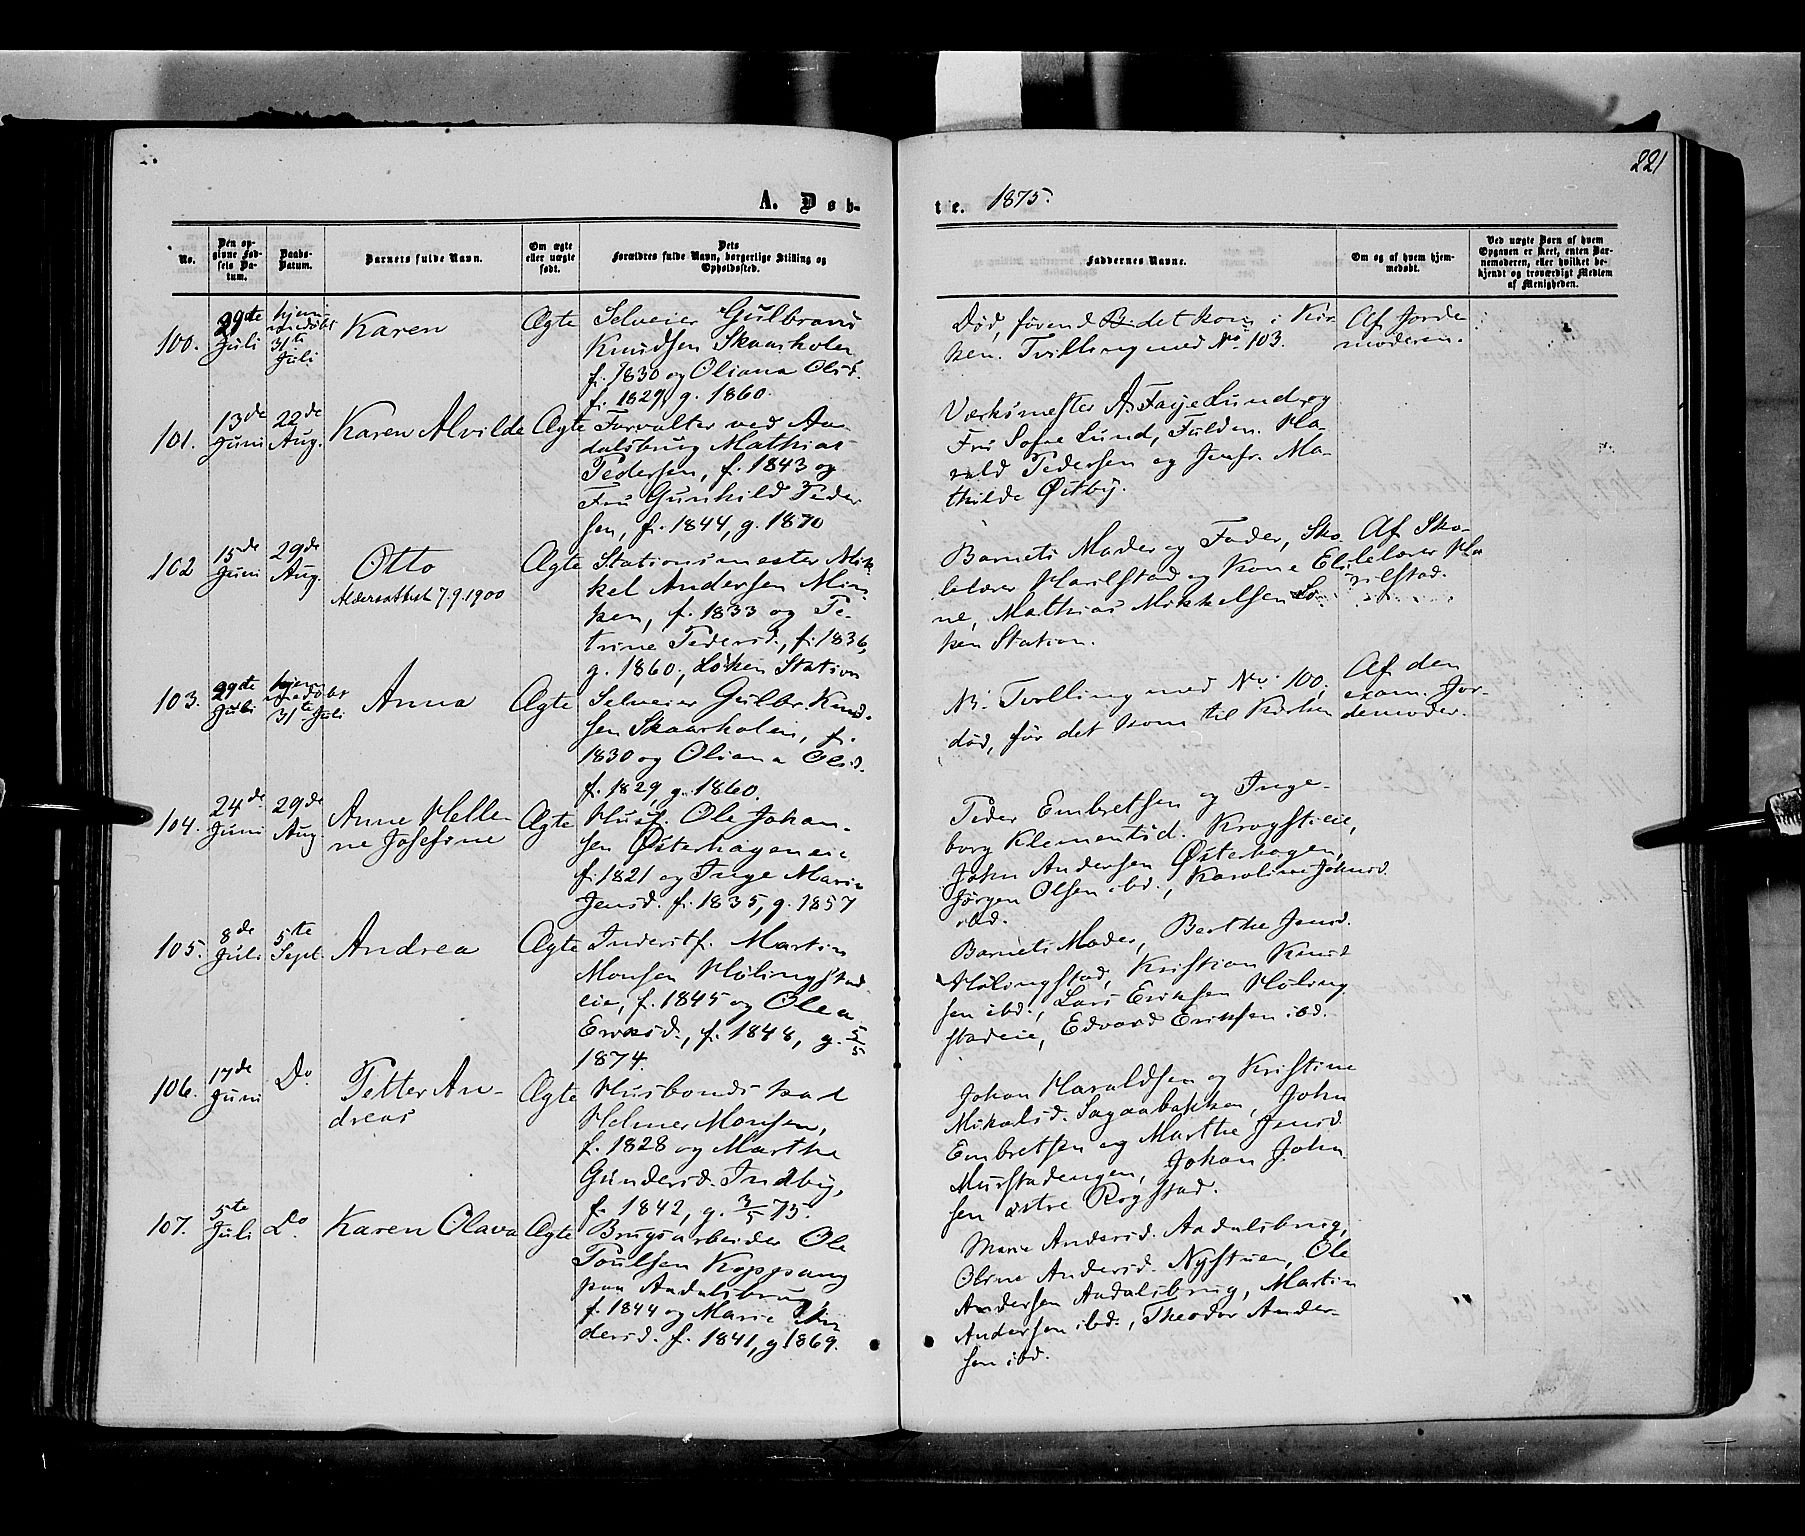 221
A. Døb-
te. 1875.
No.
Den op-
givne Fød-
sels Da-
tum.
Daabs-
Datum.
Barnets fulde Navn.
Om ægte
eller uægte
født.
Dets
Forældres fulde Navn, borgerlige Stilling og
Opholdssted.
Faddernes Navne.
Om og af hvem hjem-
medøbt.
Ved uægte Børn af hvem
Opgaven er skeet, enten Bar-
nemoderen, eller hvilket be-
kjendt og troværdigt Medlem
af Menigheden.
100.
29de
Juli
hjem
medøbt
31te
Juli
Karen
Ægte
Selveier Gulbrand
Knudsen Skaarholen
f. 1830 og Oliana Olsd.
f. 1829, g. 1860.
Død, førend det kom i Kir
ken. Tvilling med No 103.
Af Jorde
moderen.
101.
13de
Juni
22de
Aug.
Karen Alvilde
Ægte
Forvalter ved Aa-
dalsbrug Mathias
Pedersen, f. 1843 og
Fru Gunhild Peder
sen, f. 1844, g. 1870
Værksmester A. Faye Lund og
Fru Sofie Lund, Fuldm. Ha-
rald Pedersen og Jomfr. Ma-
thilde Østby.
102
15de
Juni
29de
Aug.
Otto
Aldersattest 7.9.1900
Ægte
Stationsmester Mik
kel Andersen Min
ken, f. 1833 og Pe-
trine Pedersd., f. 1836,
g. 1860, Løken Station
Barnets Moder og Fader, Sko-
lelærer Harilstad og Kone Eli-
ne, Mathias Mikkelsen Lø-
ken Station.
Af Sko-
lelærer Ha
rilstad.
103.
29de
Juli
hjem
medøbt
31te Juli
Anna
Ægte
Selveier Gulbr. Knud-
sen Skaarholen, f.
1830 og Oliana Olsd.
f. 1829, g. 1860.
NB. Tvilling med No. 100,
død, før det kom til Kirken
Af den
exam. Jor-
demoder.
104.
24de
Juni
29de
Aug
Anne Helle-
ne Josefine
Ægte
Husf. Ole Johan-
sen Østerhageneie
f. 1821 og Inge Marie
Jensd. f. 1835, g. 1857
Peder Embretsen og Inge-
borg Klementsd. Krogstieie,
John Andersen Østerhagen,
Jørgen Olsen ibd., Karoline Johnsd
ibd.
105.
8de
Juli
5te
Sept.
Andrea
Ægte
Inderstf. Martin
Monsen Hølingstad
eie, f. 1845 og Olea
Eriksd., f. 1848, g. 5/5
1874.
Barnets Moder, Berthe Jensd.
Hølingstad, Kristian Knud
sen ibd., Lars Eriksen Høling
stadeie, Edvard Eriksen ibd.
106.
17de
Juni
Do
Petter An-
dreas
Ægte
Husbondskarl
Helmer Monsen,
f. 1828 og Marthe
Gundersd. Indby,
f. 1842, g. 3/5 73.
Johan Haraldsen og Kristine
Mikalsd. Sagaabakken, John
Embretsen og Marthe Jensd
Murstadengen, Johan John
sen østre Rogstad.
107.
5te
Juli
Do
Karen Olava
Ægte
Brugsarbeider Ole
Poulsen Koppang
paa Aadalsbrug,
f. 1844 og Marie An
dersd. f. 1841, g 1869.
Marie Andersd. Aadalsbrug,
Oline Andersd. Nystuen, Ole
Andersen Aadalsbrug, Martin
Andersen ibd., Theodor Ander-
sen ibd.